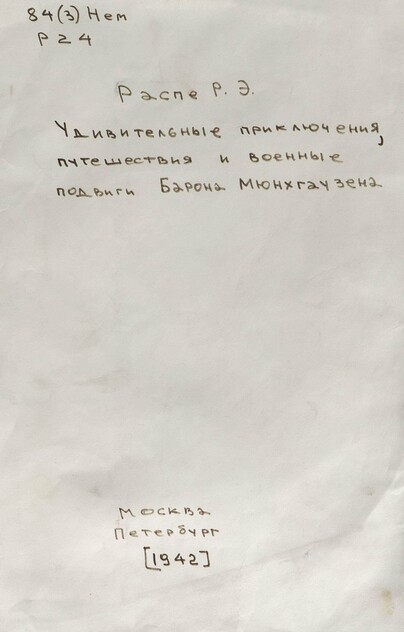 84(3) Нем
Р 24
Распе Р. Э.
Удивительные приключения,
путешествия и военные
подвиги Барона Мюнхгаузена
Москва
Петербург
[1942]